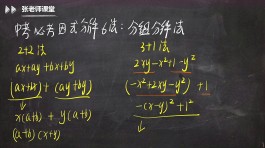 张老师课堂
中考必考因式分解6法:分组分解法
2+2法
ax+ay+bx+by
(ax+bx)+(ay+by)
x(a+b)+y(a+b)
(a+b)(x+y)
3+1法
2xy-x²+1-y²
(-x²+2xy-y²)+1
-(x-y)²+1²